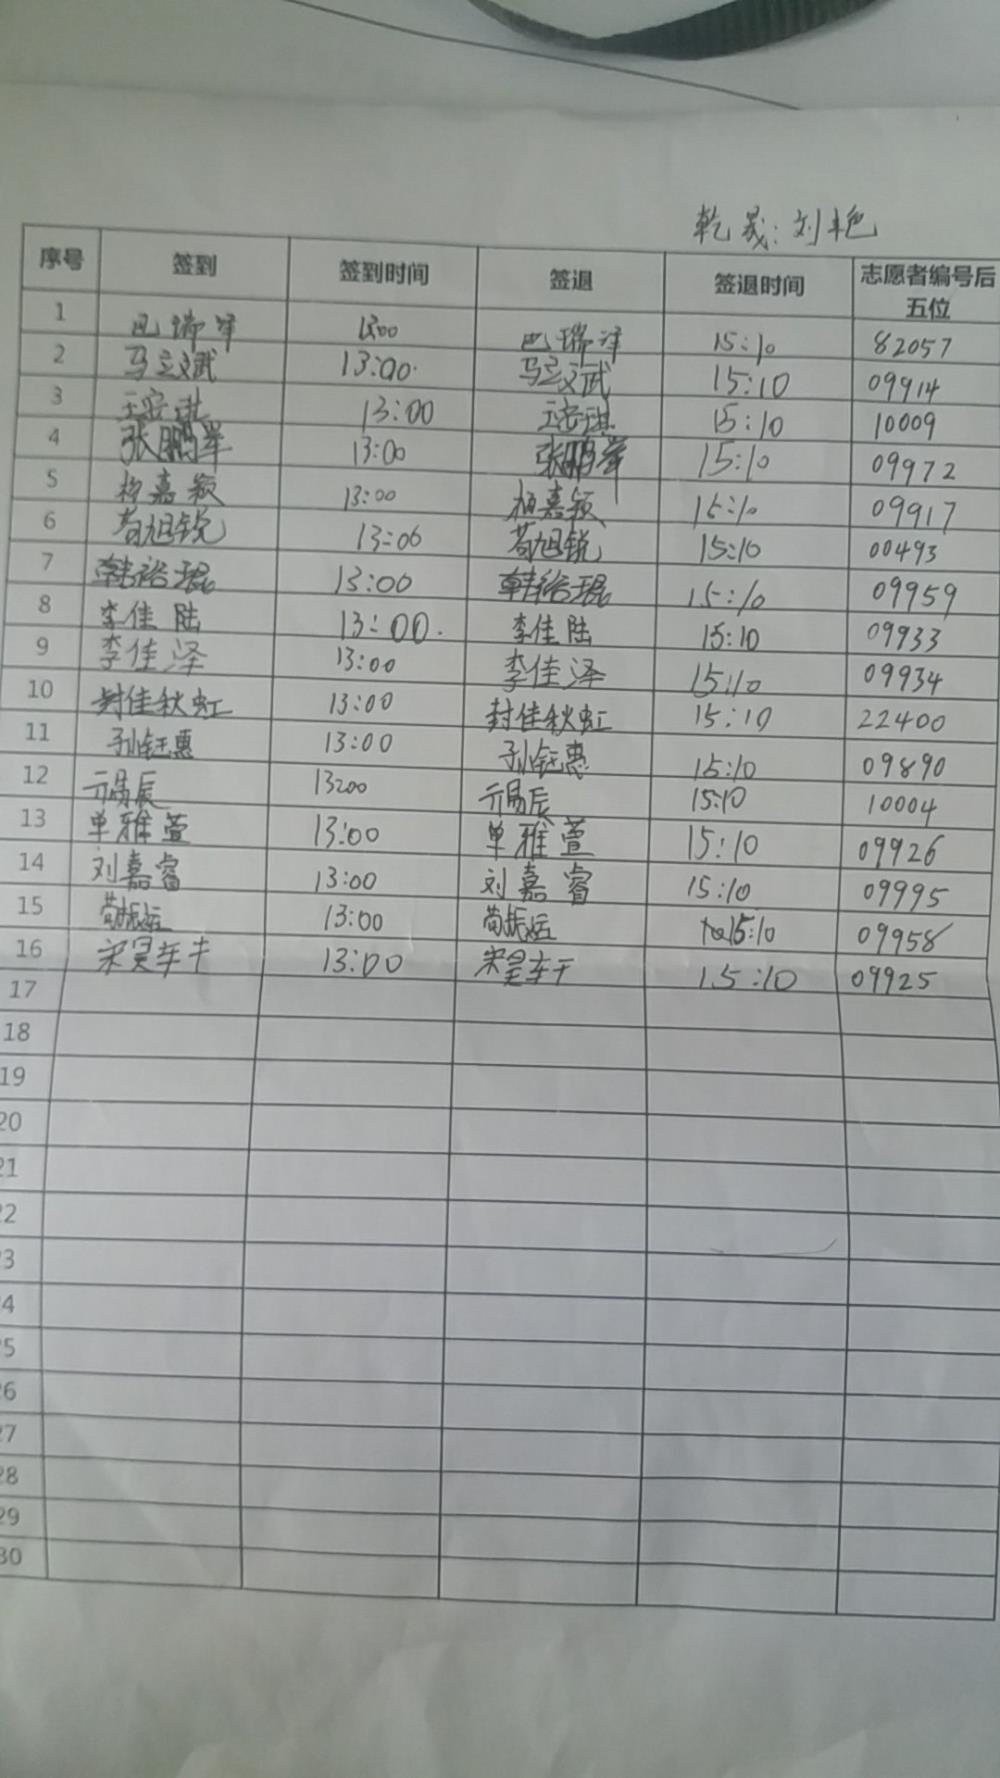 乾晟:刘艳
序号 签到 签到时间 签退 签退时间 志愿者编号后五位
1 巴瑞泽 13:00 巴瑞泽 15:10 82057
2 马立斌 13:00 马立斌 15:10 09914
3 王安琪 13:00 王安琪 15:10 10009
4 张鹏举 13:00 张鹏举 15:10 09972
5 杨嘉颖 13:00 杨嘉颖 15:10 09917
6 苟旭锐 13:00 苟旭锐 15:10 00493
7 韩裕琨 13:00 韩裕琨 15:10 09959
8 李佳陆 13:00 李佳陆 15:10 09933
9 李佳泽 13:00 李佳泽 15:10 09934
10 封佳秋虹 13:00 封佳秋虹 15:10 22400
11 孙钰惠 13:00 孙钰惠 15:10 09890
12 亓易辰 13:00 亓易辰 15:10 10004
13 单雅萱 13:00 单雅萱 15:10 09926
14 刘嘉睿 13:00 刘嘉睿 15:10 09995
15 苟振 13:00 苟振 15:10 09958
16 宋昊 13:00 宋昊 15:10 09925
17
18
19
20
21
22
23
24
25
26
27
28
29
30